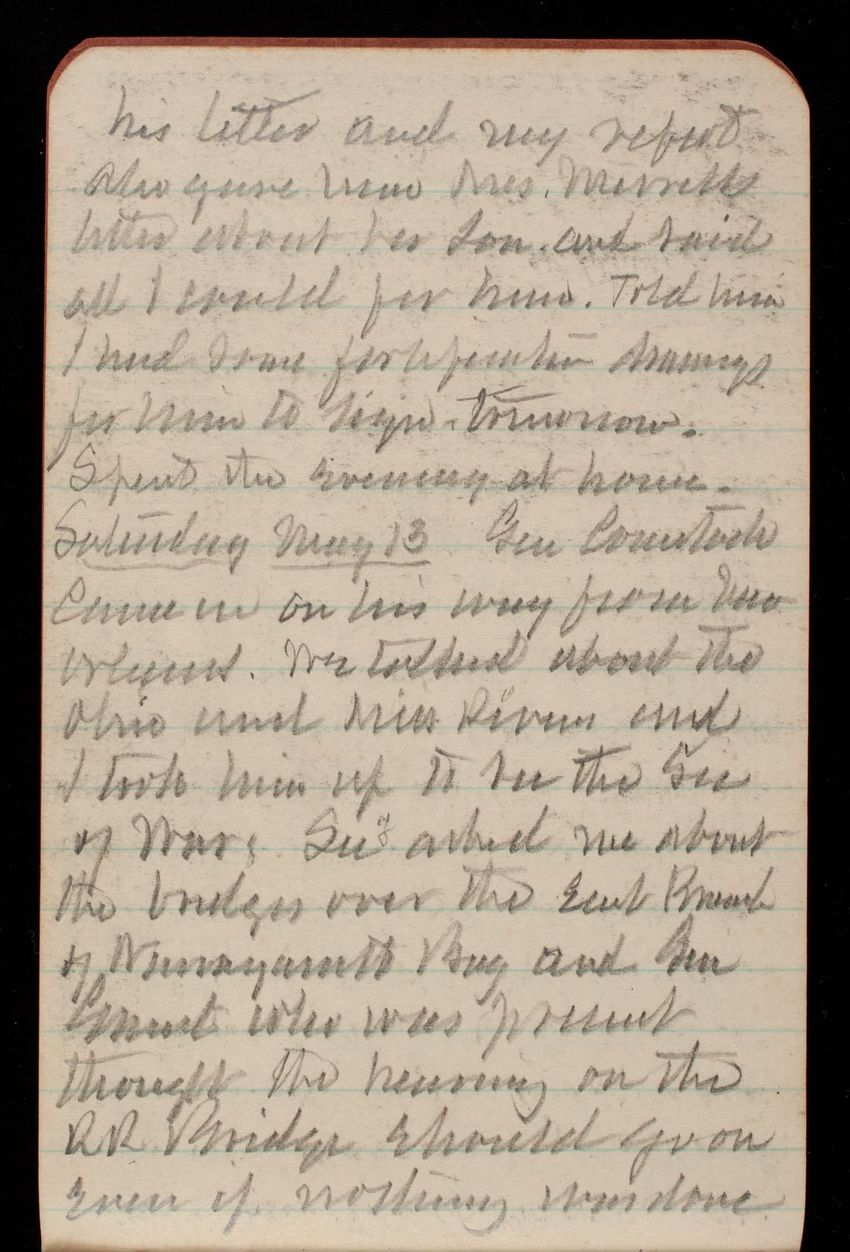 his letter and my report
Also gave him Mrs. Merrells
letter about her Son. and said
all I could for him. Told him
I had some fortification drawings
for him to sign tomorrow.
Spent the evening at home.
Saturday May 13 Gen Comstock
Came in on his way from New
Orleans. We talked about the
Ohio and Miss Rivers and
I took him up to see the Sec
of War; Secy asked me about
the bridges over the East Branch
of Narragansett Bay and Gen
who was present
thought the hearing on the
RR Bridge should go on
Even if nothing was done